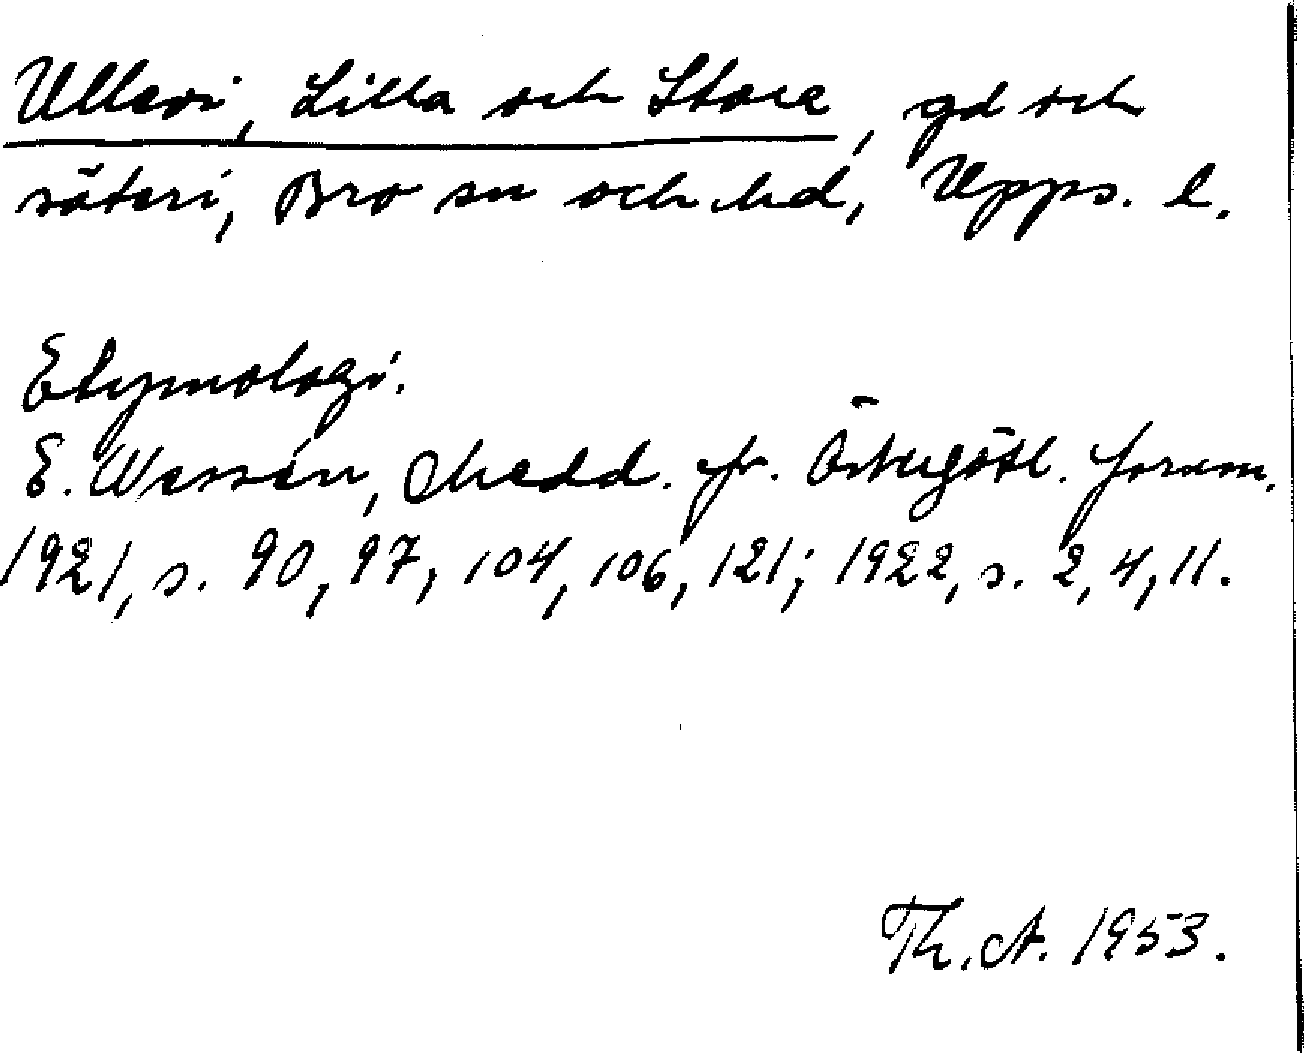 Ullevi, Lilla och Stora, gd och
säteri, Bro sn och hd, Upps. l.
Etymologi.
E. Wessén, Medd. fr. Östergötl. fornm.
1921, s. 90, 97, 104, 106, 121; 1922, s. 2, 4, 11.
Th. A. 1953.